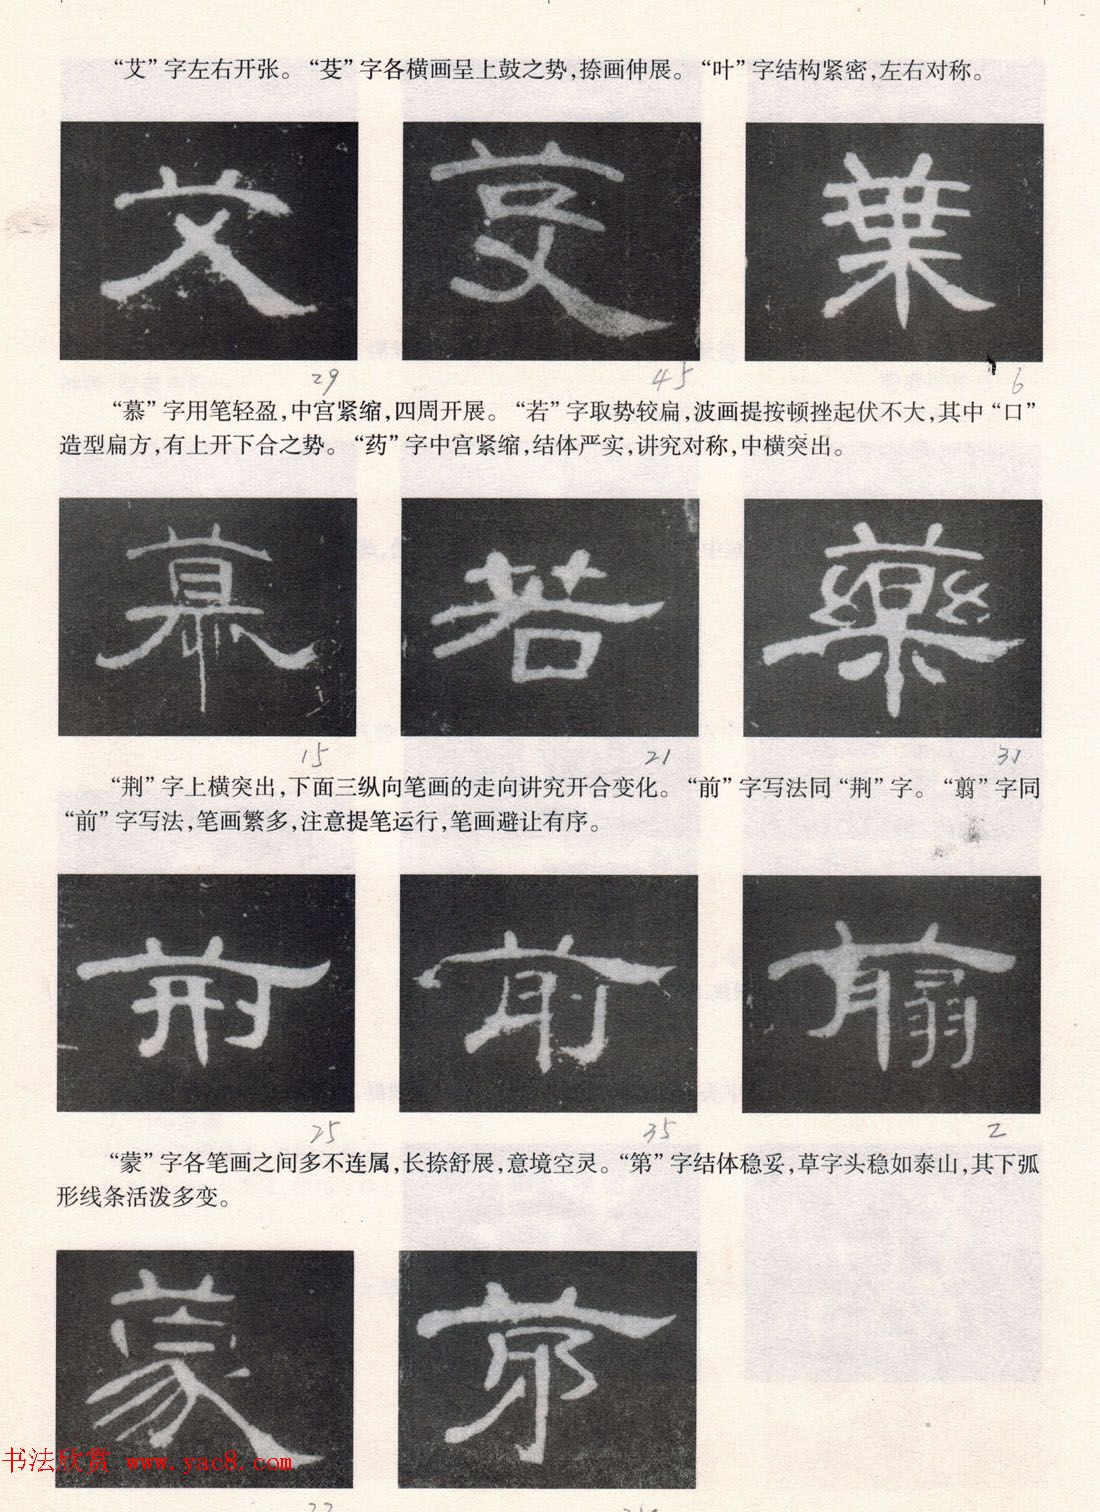 “艾”字左右开张。“芟”字各横画呈上鼓之势，捺画伸展。“叶”字结构紧密，左右对称。
艾 芟 葉
29 45 6
“慕”字用笔轻盈，中宫紧缩，四周开展。“若”字取势较扁，波画提按顿挫起伏不大，其中“口”
造型扁方，有上开下合之势。“药”字中宫紧缩，结体严实，讲究对称，中横突出。
慕 若 藥
15 21 31
“荆”字上横突出，下面三纵向笔画的走向讲究开合变化。“前”字写法同“荆”字。“翦”字同
“前”字写法，笔画繁多，注意提笔运行，笔画避让有序。
荆 前 翦
25 35 2
“蒙”字各笔画之间多不连属，长捺舒展，意境空灵。“第”字结体稳妥，草字头稳如泰山，其下弧
形线条活泼多变。
蒙 第
书法欣赏 www.yac8.com